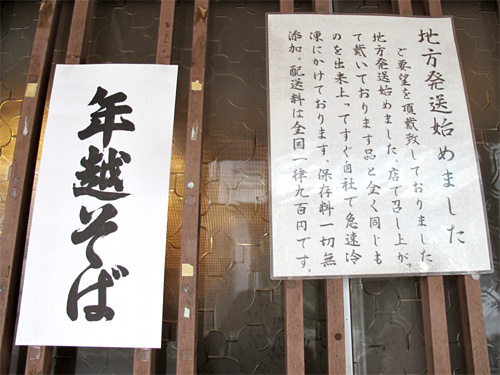 地方発送始めました
ご要望を頂戴致しておりました
地方発送始めました。店で召し上がっ
て戴いております品と全く同じも
のを出来上ってすぐ自社で急速冷
凍にかけております。保存料一切無
添加。配送料は全国一律九百円です。
年越そば